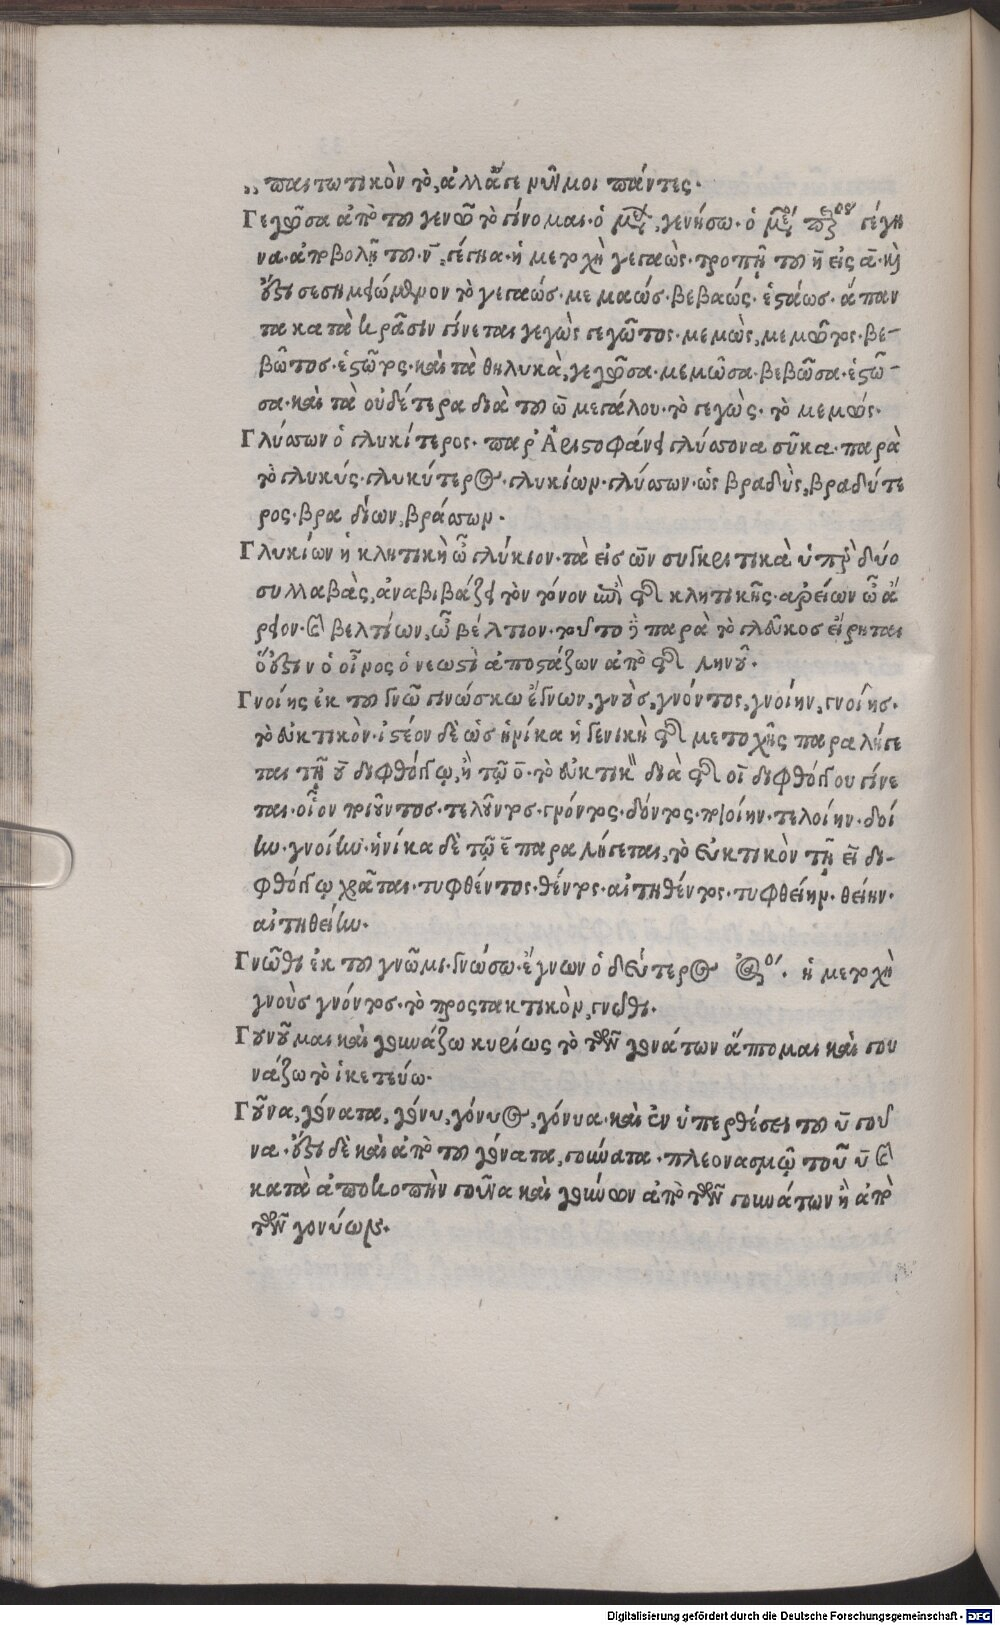 „ παιτωτικὸν τὸ, ἀλλᾶγε μῦνμοι πάντες.
Γεγῶσα ἀπὸ τοῦ γενῶ τὸ γίνομαι· ὁ μέλ, γενήσω· ὁ μέ γέγη
να· ἀποβολῇ τοῦ ν̄, γέγηα· ἡ μετοχὴ γεγαὼς· τροπῇ τοῦ η̄ εἰς ᾱ· καὶ
οὕτω σεσημειώμενον τὸ γεγαώς· μεμαώς· βεβαώς· ἑσάως· ἅπαν
τα κατὰ κρᾶσιν γίνεται γεγὼς γεγῶτος· μεμὼς, μεμῶτος· βε-
βῶτοσ· ἑςῶτος· καὶ τὰ θηλυκὰ, γεγῶσα· μεμῶσα· βεβῶσα· ἑςῶ-
σα· καὶ τὰ οὐδέτερα διὰ τοῦ ω̄ μεγάλου· τὸ γεγὼς· τὸ μεμώς·
Γλύσσων ὁ γλυκίτερος· παρ' Ἀριστοφάνει γλύσσονα σῦκα· παρὰ
τὸ γλυκύς· γλυκύτερος· γλυκίων· γλύσσων· ὡς βραδὺς, βραδύτε
ρος· βραδίων, βράσσων·
Γλυκίων ἡ κλητικὴ ὦ γλύκιον· τὰ εἰσ ων συγκριτικὰ ὑπὲρ δύο
συλλαβὰς, ἀναβιβάζει τὸν τόνον ἐπὶ τῆς κλητικῆς· ἀρείων ὦ ἄ
ρειον· καὶ βελτίων, ὦ βέλτιον· τοῦτο ἢ παρὰ τὸ γλεῦκοσ εἴρηται
ὅ ἐστιν ὁ οἶνος ὁ νεωςὶ ἀποςάζων ἀπὸ τῆς ληνοῦ.
Γνοίης ἐκ τοῦ γνῶ γινώσκω ἔγνων, γνοὺσ, γνόντος, γνοίην, γνοίησ·
τὸ εὐκτικὸν· ἰςέον δὲ ὡσ ἡνίκα ἡ γενικὴ τῆς μετοχῆς παραλήγε
ται τῇ ου διφθόγγῳ, ἢ τῷ ο̄· τὸ εὐκτικὸν διὰ τῆς οι διφθόγγου γίνε
ται· οἷον ποιοῦντοσ· τελοῦντος· γνόντος· δόντος· ποιοίην· τελοίην· δοί
ην· γνοίην· ἡνίκα δὲ τῷ ε̄ παραλήγεται, τὸ εὐκτικὸν τῇ ει δι-
φθόγγῳ χρᾶται· τυφθέντος· θέντος· αἰτηθέντος· τυφθείην· θείην·
αἰτηθείην·
Γνῶθι ἐκ τοῦ γνῶμι· γνώσω· ἔγνων ὁ δεύτερος ἀόρ. ἡ μετοχὴ
γνοὺσ γνόντος· τὸ προςτακτικὸν, γνῶθι·
Γουνοῦμαι καὶ γουνάζω κυρίως τὸ τῶν γονάτων ἅπτομαι καὶ γου
νάζω τὸ ἱκετεύω·
Γοῦνα, γόνατα, γόνυ, γόνυος, γόνυα· καὶ ἐν ὑπερθέσει τοῦ ῡ γοῦ
να· οὕτω δὲ καὶ ἀπὸ τοῦ γόνατα, γούνατα· πλεονασμῷ τοῦ ῡ καὶ
κατὰ ἀποκοπὴν γοῦνα καὶ γούνων ἀπὸ τῶν γουνάτων ἢ ἀπὸ
τῶν γονύων.
Digitalisierung gefördert durch die Deutsche Forschungsgemeinschaft - DFG